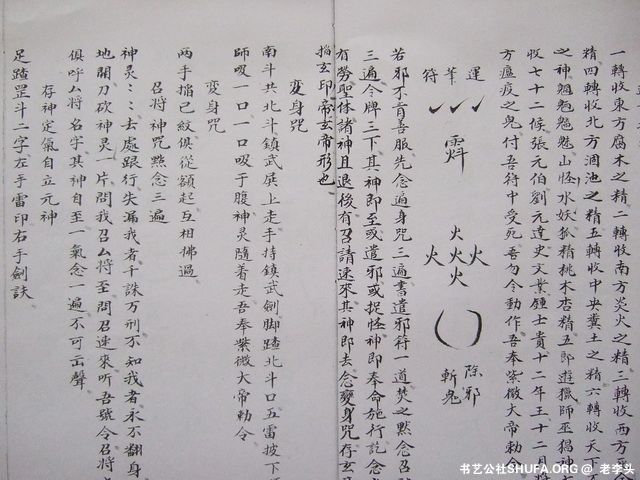 一轉收東方腐木之精二轉收南方炎火之精三轉收西方
精四轉收北方涸池之精五轉收中央糞土之精六轉收天下
之神魍魎魑魅山怪水妖狐精桃木杏精五郎遊獵師巫猖神
收七十二候張元伯劉元達史文業鍾士貴十二年王十二月將
方瘟疫之鬼付吾符中受死吾勿令動作吾奉紫微大帝勅令
運筆符
火火火火火
除邪
斬鬼
若邪不肯善服先念遍身咒三遍書遣邪符一道焚之黙念召
三遍令牌三下其神即至或遣邪或捉怪神即奉命施行訖念
有勞聖体諸神且退後有召請速來其神即去念變身咒存玄
掐玄印帝玄帝形也
變身咒
南斗共北斗鎮武展上走手持鎮武劍脚踏北斗口五雷披下
師吸一口一口吸于腹神灵隨着走吾奉紫微大帝勅令
變身咒
兩手掐己紋俱從額起互相拂過
召將神咒黙念三遍
神灵:：去處跟行失漏我者千誅万刑不知我者永不翻身
地開刀砍神灵一片問我召厶將至問召速來听吾號令召將
俱呼厶將名字其神自至一氣念一遍不可出聲
存神定氣自立元神
足踏罡斗二字左手雷印右手劍訣
书艺公社SHUFA.ORG @ 老李头